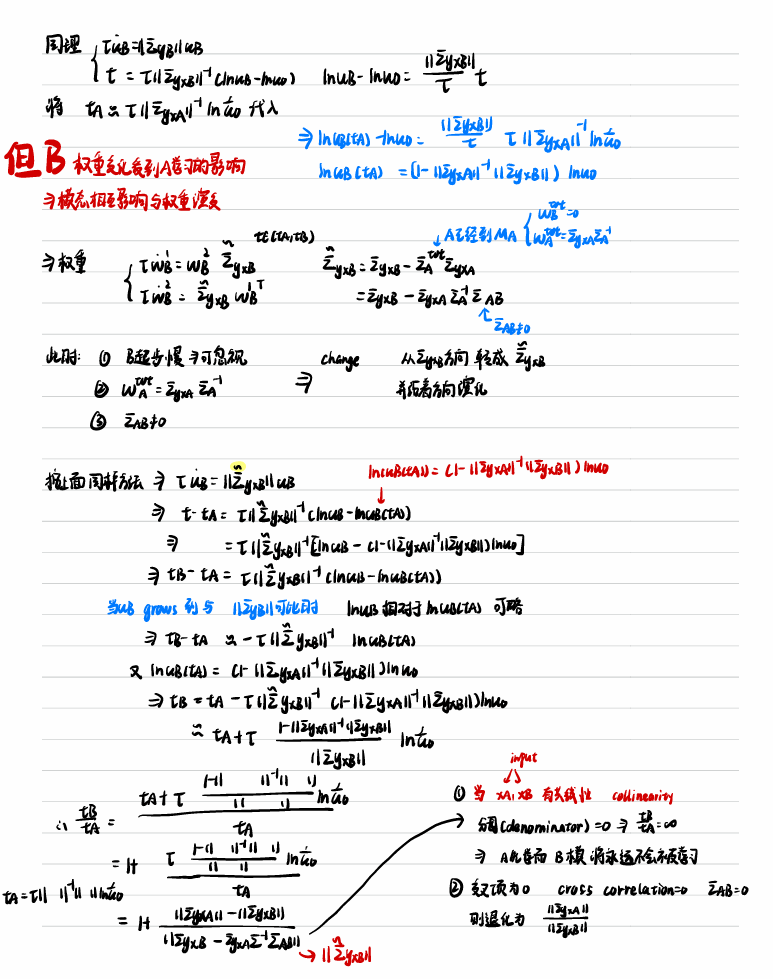 同理 { τu̇B = ||ΣyxB||uB
t = τ||ΣyxB||⁻¹(lnuB-lnu0) lnuB-lnu0 = ||ΣyxB||/τ t
将 tA ≃ τ||ΣyxA||⁻¹ ln 1/u0 代入
⇒ lnuB(tA)-lnu0 = ||ΣyxB||/τ τ||ΣyxA||⁻¹ ln 1/u0
lnuB(tA) = (1-||ΣyxA||⁻¹||ΣyxB||) lnu0
但B 权重变化受到A学习的影响
⇒ 模态相互影响与权重演变
⇒ 权重 t∈(tA,tB)
{ τẆB¹ = WB² Σ̃yxB
τẆB² = Σ̃yxB WB¹ᵀ
Σ̃yxB = ΣyxB - WAᵗᵒᵗ ΣyxA
= ΣyxB - ΣyxA ΣA⁻¹ ΣAB
↓ A已经到MA { WBᵗᵒᵗ=0
WAᵗᵒᵗ=ΣyxAΣA⁻¹
↑ ΣAB≠0
此时: ① B起步慢 ⇒ 可忽视
② WAᵗᵒᵗ = ΣyxA ΣA⁻¹
③ ΣAB≠0
⇒ change 从ΣyxB方向 转成 Σ̃yxB
并沿着方向演化
按上面同样方法 ⇒ τu̇B = ||Σ̃yxB||uB
ln(uB(tA)) = (1-||ΣyxA||⁻¹||ΣyxB||) lnu0
⇒ t-tA = τ||Σ̃yxB||⁻¹(lnuB-lnuB(tA))
⇒ = τ||Σ̃yxB||⁻¹[lnuB - (1-||ΣyxA||⁻¹||ΣyxB||)lnu0]
⇒ tB-tA = τ||Σ̃yxB||⁻¹(lnuB-lnuB(tA))
当uB grows 到与 ||ΣyB||可比时 lnuB 相对于 lnuB(tA) 可略
⇒ tB-tA ≃ -τ||Σ̃yxB||⁻¹ lnuB(tA)
又 lnuB(tA) = (1-||ΣyxA||⁻¹||ΣyxB||)lnu0
⇒ tB = tA - τ||Σ̃yxB||⁻¹ (1-||ΣyxA||⁻¹||ΣyxB||)lnu0
≈ tA+τ (1-||ΣyxA||⁻¹||ΣyxB||)/||Σ̃yxB|| ln 1/u0
∴ tB/tA = (tA+τ (1-|| ||⁻¹|| ||)/(|| ||) ln 1/u0)/tA
= 1+ (τ (1-|| ||⁻¹|| ||)/(|| ||) ln 1/u0)/tA
tA=τ|| ||⁻¹ ln 1/u0
= 1+ (||ΣyxA||-||ΣyxB||)/||ΣyxB - ΣyxAΣ⁻¹ΣAB||
→ ||Σ̃yxB||
input
① 当 xA, xB 有共线性 collinearity
分母(denominator)=0 ⇒ tB/tA=∞
⇒ A先学而 B模 将永远不会被学习
② 交项为0 cross correlation=0 ΣAB=0
则退化为 ||ΣyxA||/||ΣyxB||